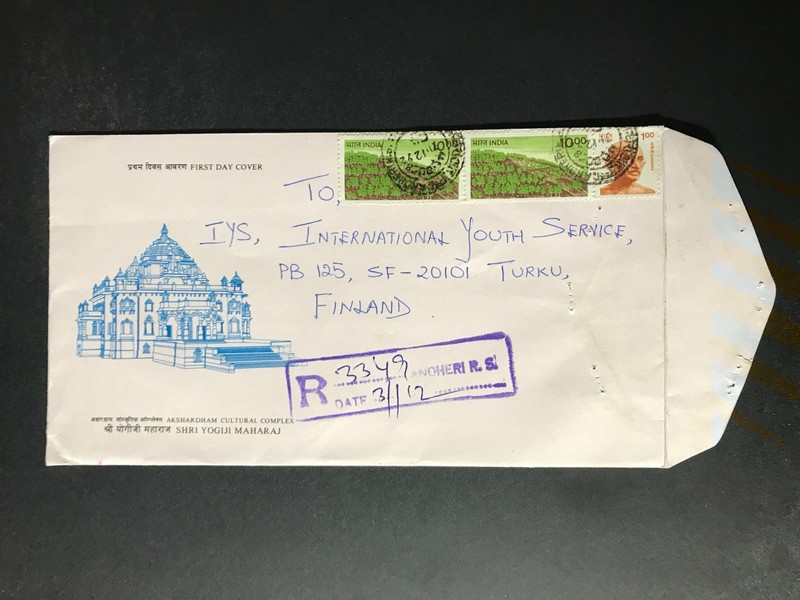 प्रथम दिवस आवरण FIRST DAY COVER
भारत INDIA
भारत INDIA 10.00
1.00
To,
IYS, INTERNATIONAL YOUTH SERVICE,
PB 125, SF-20101 TURKU,
FINLAND
R 3349 ANDHERI R. S.
DATE 31/12
अक्षरधाम सांस्कृतिक कॉम्प्लेक्स AKSHARDHAM CULTURAL COMPLEX
श्री योगीजी महाराज SHRI YOGIJI MAHARAJ